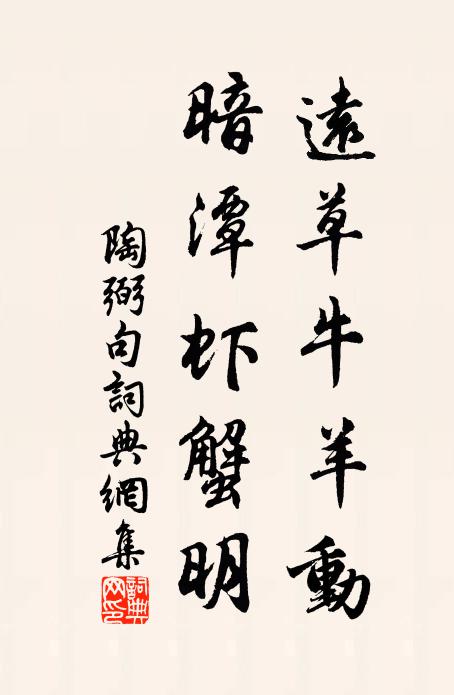 遠草牛羊動
暗潭虾蟹明
陶弼句詞典網集
詞典网印